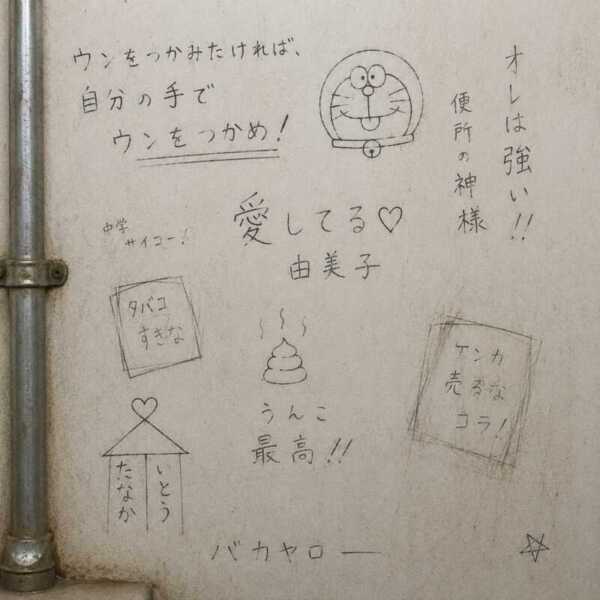 ウンをつかみたければ、
自分の手で
ウンをつかめ!
オレは強い!!
便所の神様
愛してる♡
由美子
中学
サイコー!
タバコ
すきな
ケンカ
売るな
コラ!
うんこ
最高!!
いとう
たなか
バカヤロー